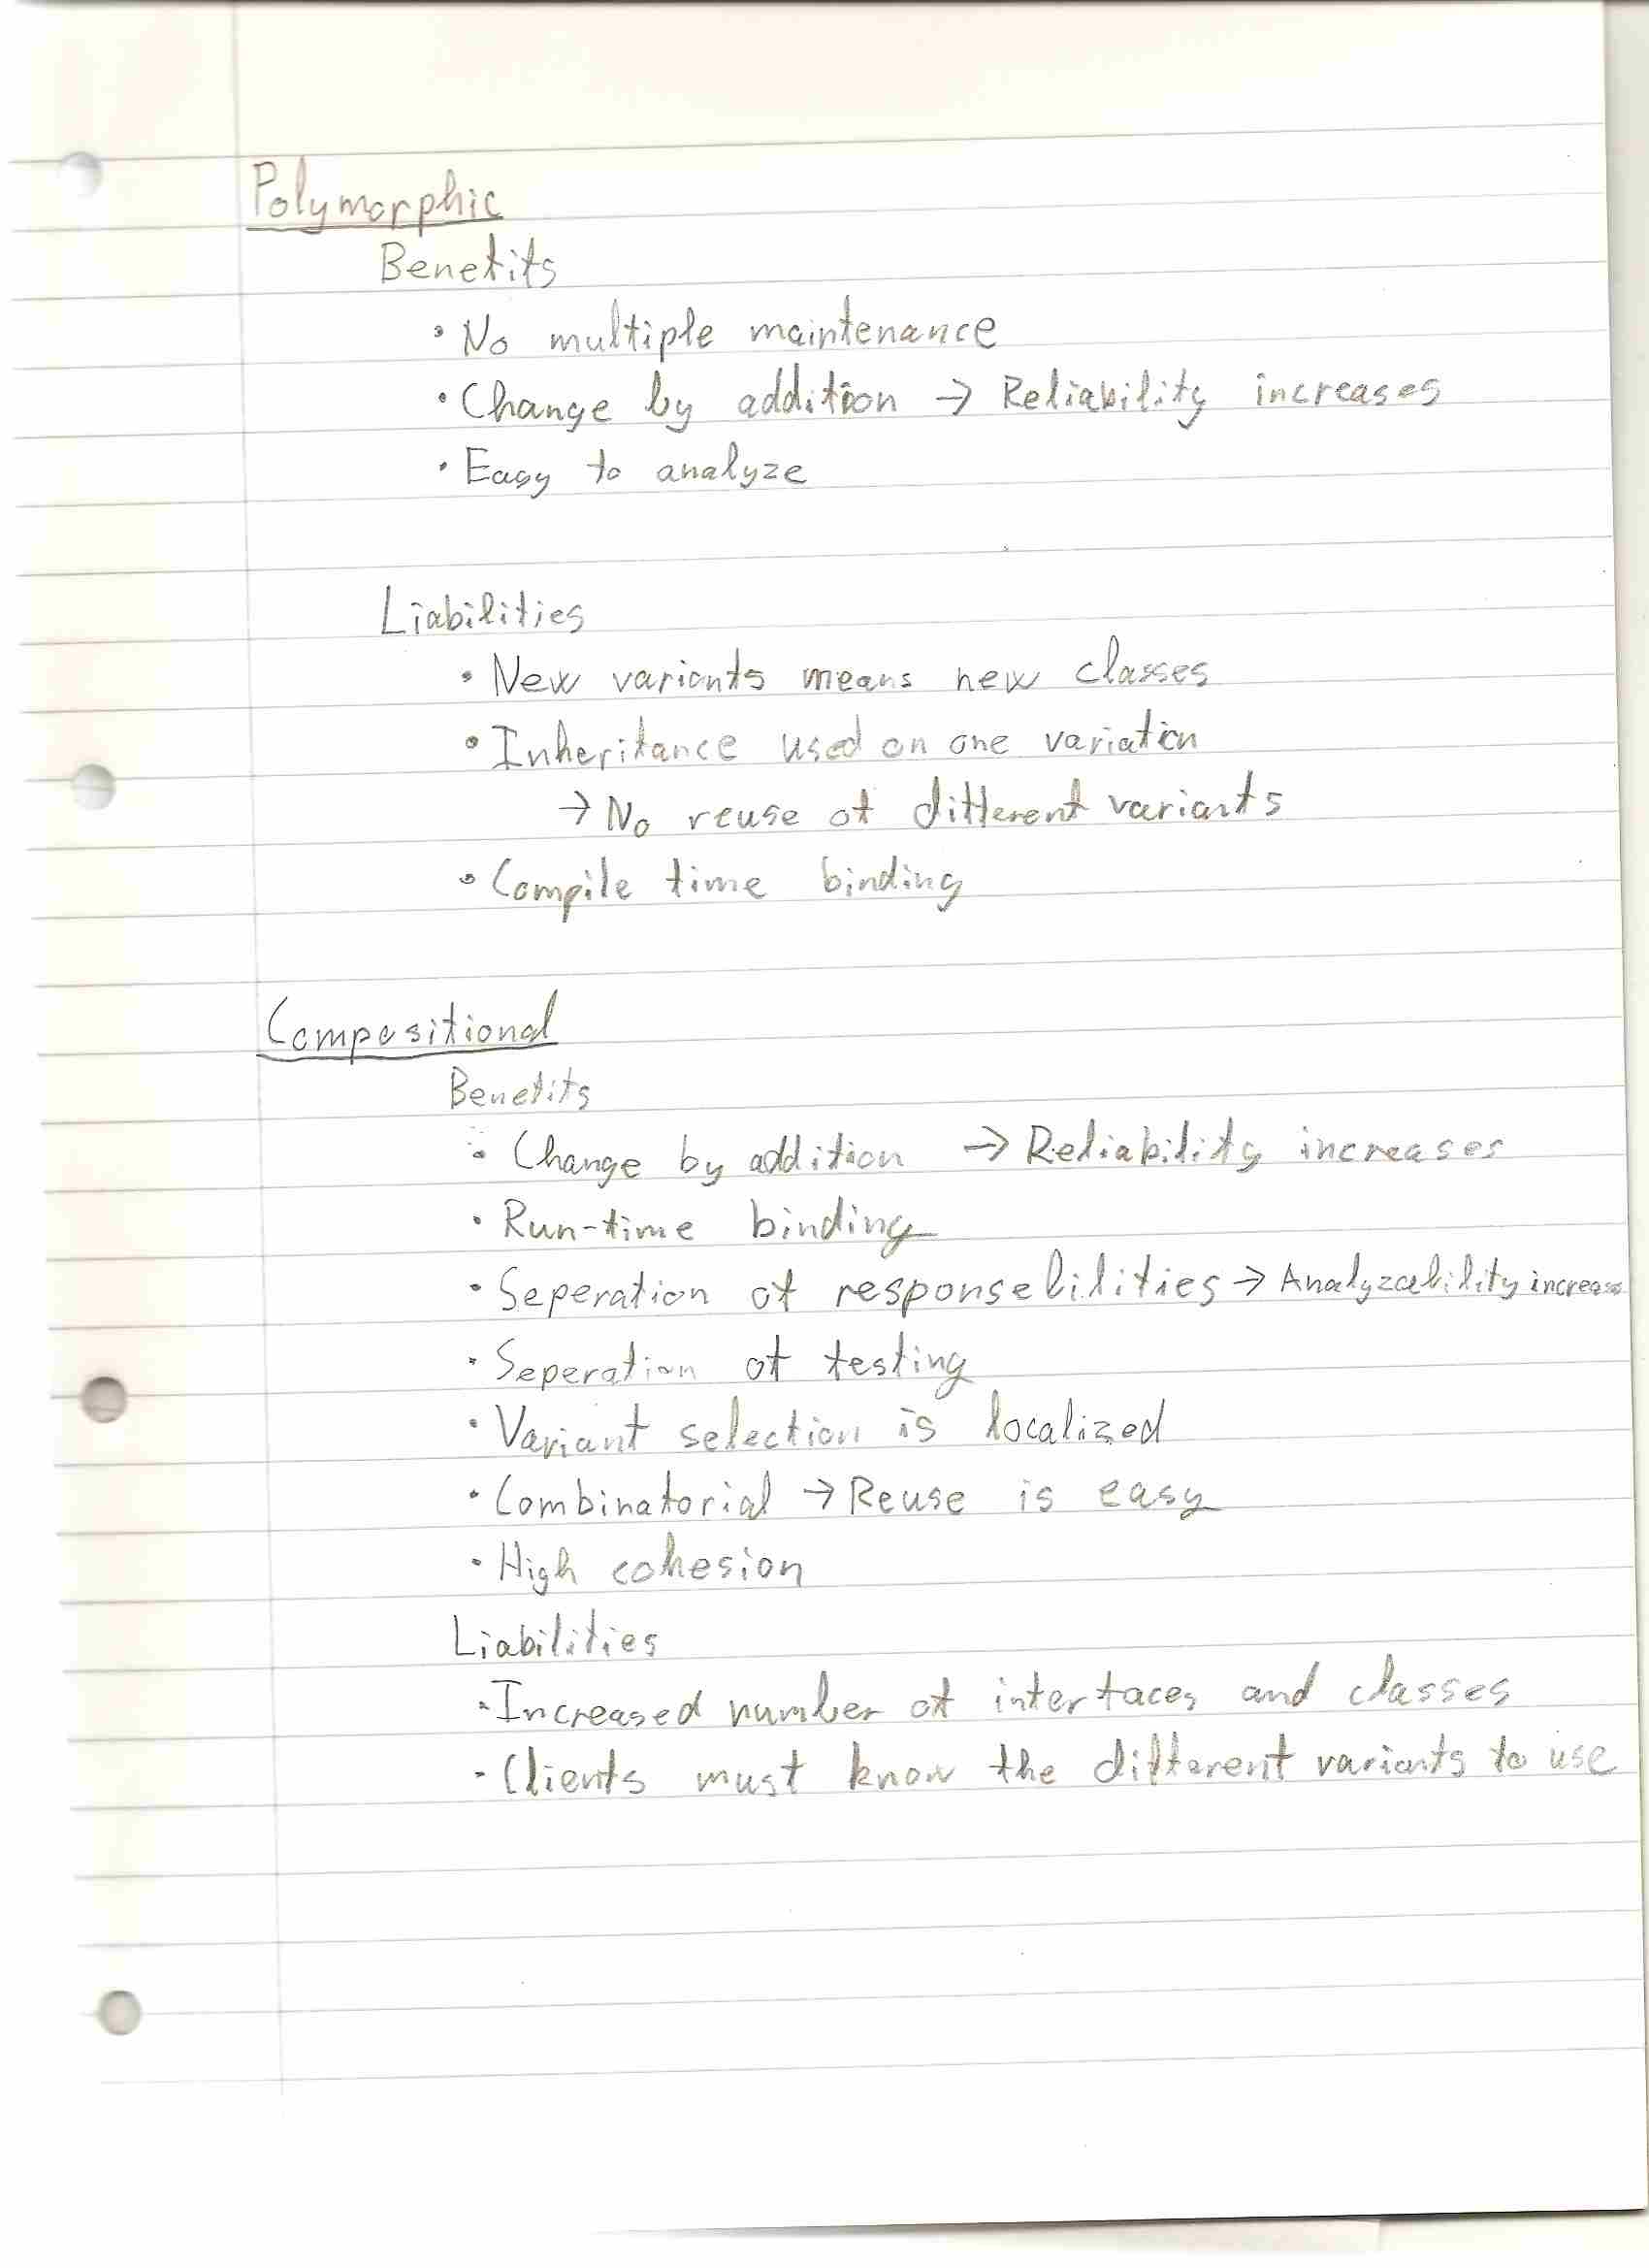 Polymorphic
Benefits
• No multiple maintenance
• Change by addition → Reliability increases
• Easy to analyze
Liabilities
• New variants means new classes
• Inheritance used on one variation
→ No reuse of different variants
• Compile time binding
Compositional
Benefits
• Change by addition → Reliability increases
• Run-time binding
• Seperation of responsebilities → Analyzability increases
• Seperation of testing
• Variant selection is localized
• Combinatorial → Reuse is easy
• High cohesion
Liabilities
• Increased number of interfaces and classes
• Clients must know the different variants to use